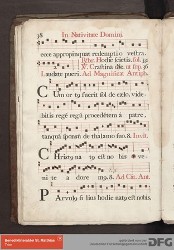 38 In Nativitate Domini
ecce appropinquat redemptio vestra.
Hodie scietis. fol. 32
℣. Crastina die fol. 36
Laudate pueri. Ad Magnificat Antiph.
Cum ortus fuerit sol de cælo, vide-
bitis regem regum procedentem à patre,
tanquam sponsum de thalamo suo. 8. Invit.
Christus natus est no bis ve-
ni te a dore mus. Ad Cōi. Ant.
Parvulus filius hodie natus est nobis
DFG